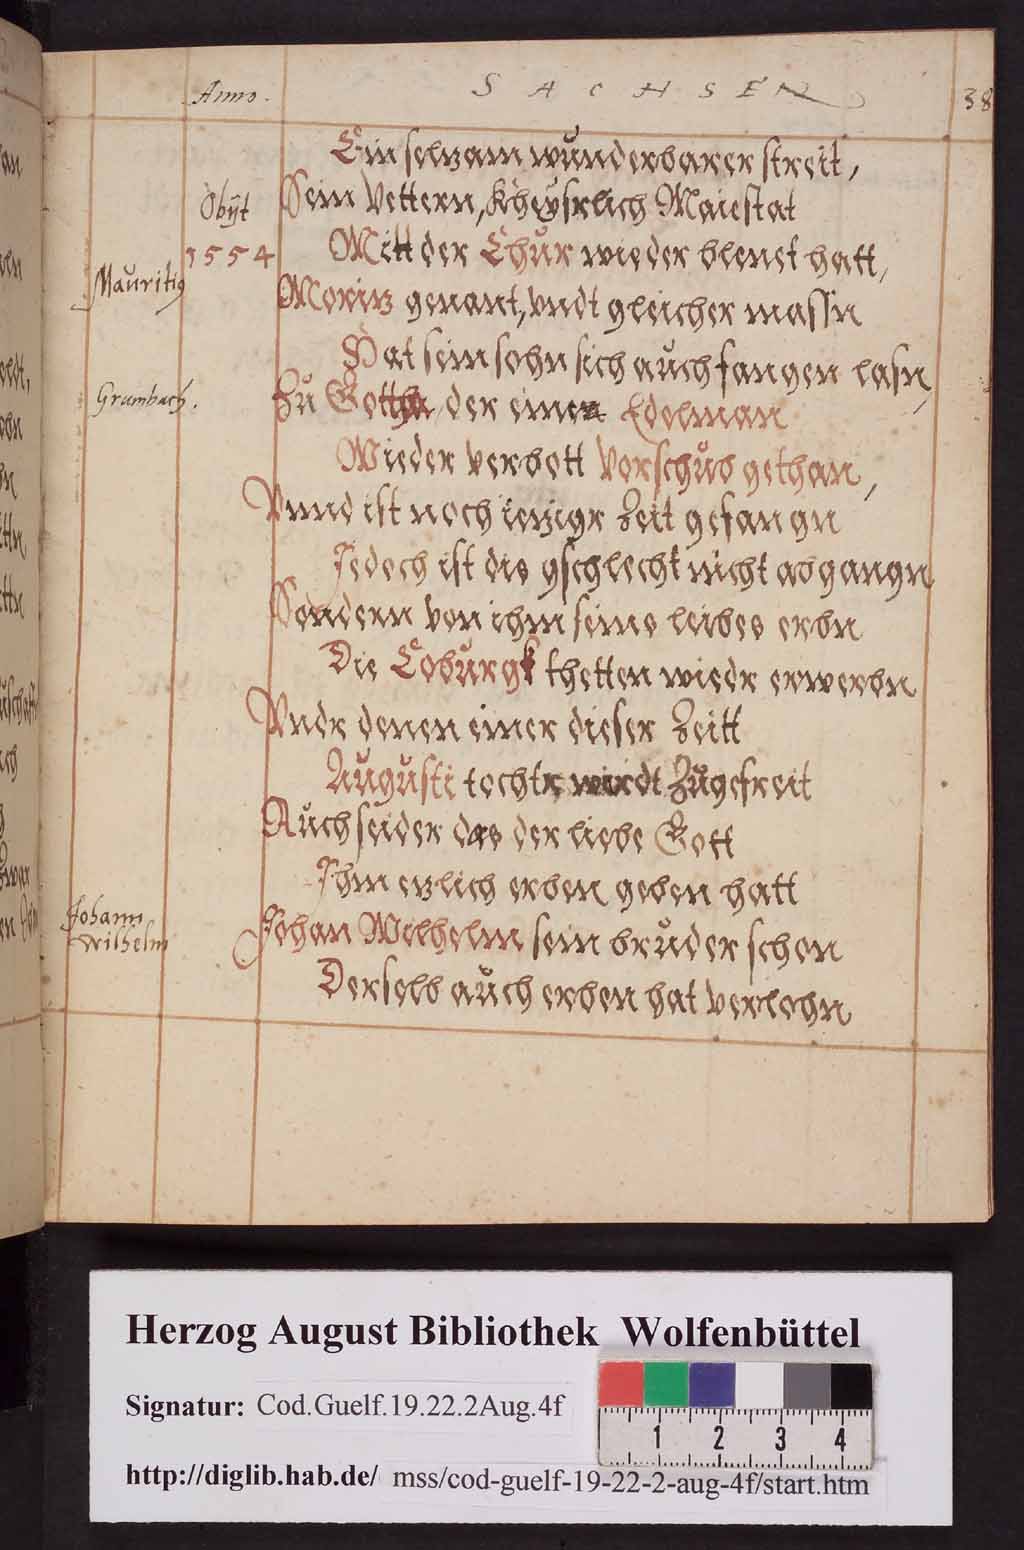 Anno.
SACHSEN
38
Ein selzam wunderbarer streit,
Obyt
Sein Vettern, Kheysrlich Maiestat
1554
Mitt der Chur wieder blenet hatt,
Mauritiq
Moritz genant, vndt gleicher massn
Hat sein sohn sich auch fangen lasn,
Grumbach.
Zu Gottha der einen Edelman
Wieder verbott vorschub gethan,
Vnnd ist noch ietzigr Zeit gefangn
Jedoch ist die gschlecht nicht abgangn
Sondern von ihm seine leibes erbn
Die Coburgk thetten wiedr erwerbn
Vndr denen einer dieser Zeitt
Augusti tochtr wirdt Zugefreit
Auch seider das der liebe Gott
Ihm etzlich erben geben hatt
Johann
Wilhelm
Johan Wilhelm sein bruder schon
Derselb auch erben hat verlohn
Herzog August Bibliothek Wolfenbüttel
Signatur: Cod.Guelf.19.22.2Aug.4f
1 2 3 4
http://diglib.hab.de/ mss/cod-guelf-19-22-2-aug-4f/start.htm